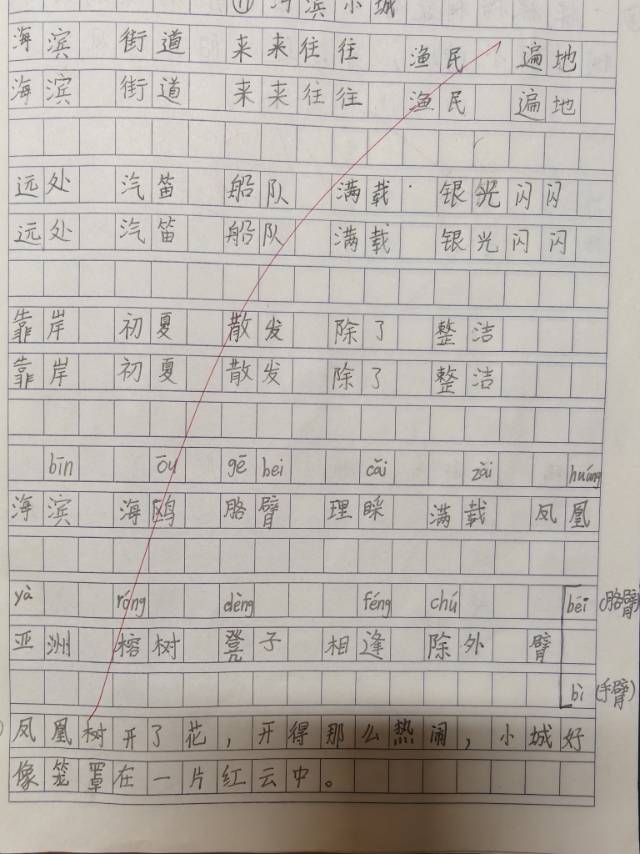 ⑪ 海滨小城
海滨 街道 来来往往 渔民 遍地
海滨 街道 来来往往 渔民 遍地
远处 汽笛 船队 满载 银光闪闪
远处 汽笛 船队 满载 银光闪闪
靠岸 初夏 散发 除了 整洁
靠岸 初夏 散发 除了 整洁
bīn ōu gē bei cǎi zài huáng
海滨 海鸥 胳臂 理睬 满载 凤凰
yà róng dèng féng chú bei (胳臂)
亚洲 榕树 凳子 相逢 除外 臂
bì (手臂)
凤凰树开了花，开得那么热闹，小城好
像笼罩在一片红云中。